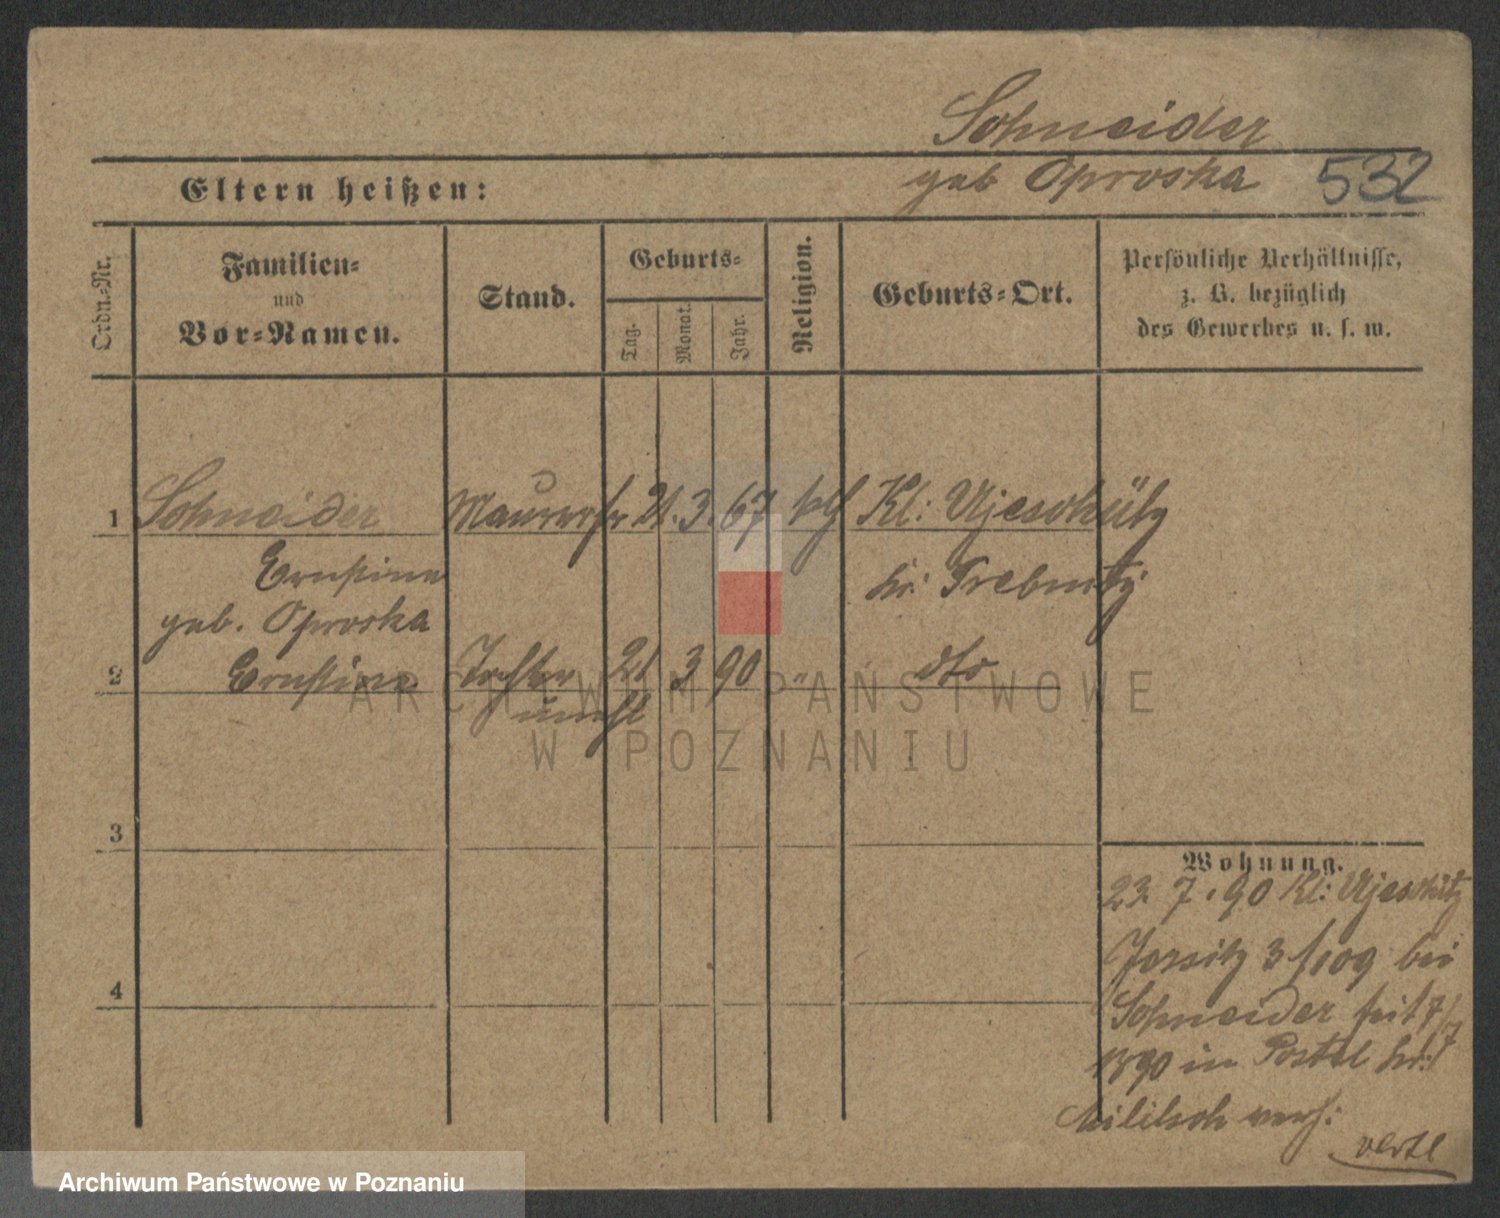 Schneider
geb Oproska 532
Eltern heißen:
Ordn.-Nr.
Familien-
und
Vor-Namen.
Stand.
Geburts-
Tag.
Monat.
Jahr.
Religion.
Geburts-Ort.
Persönliche Verhältnisse,
z. B. bezüglich
des Gewerbes u. s. w.
1 Schneider Maurerfr 21. 3. 67 klh Kl: Ujeschütz
Ernstine Kr: Trebnitz
geb. Oproska
2 Ernstine Tochter 21 3 90 " dto
unehl
3
4
Wohnung.
23. 7. 90 Kl: Ujeschütz
Jersitz 3/109 bei
Schneider seit 7/7
1890 in Postel Kr:
Militsch verh:
verte
ARCHIWUM PAŃSTWOWE
W POZNANIU
Archiwum Państwowe w Poznaniu